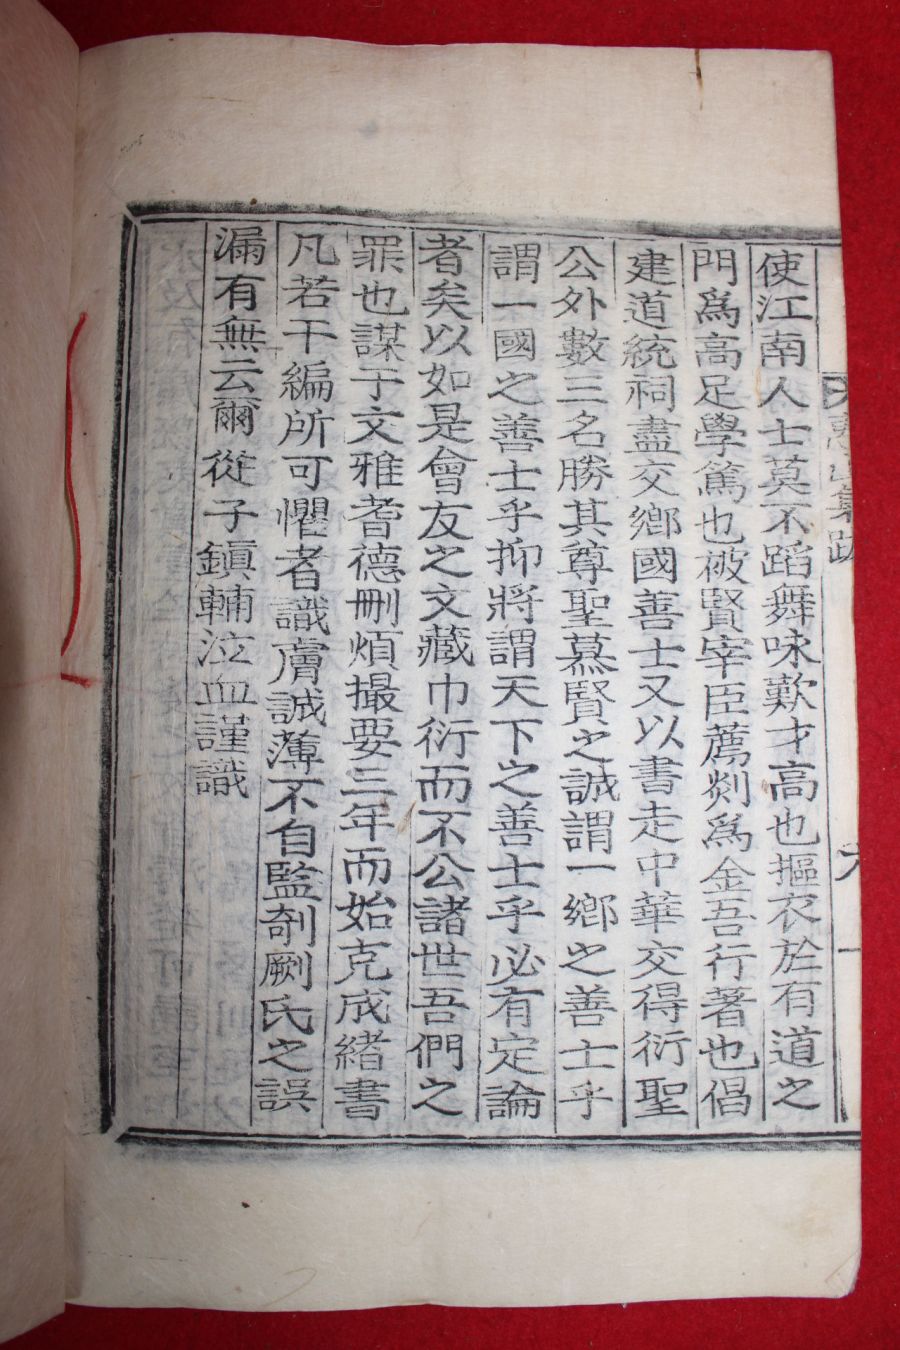 使江南人士莫不蹈舞咏歎才高也摳衣於有道之
門爲高足學篤也被賢宰臣薦剡爲金吾行著也倡
建道統祠盡交鄉國善士又以書走中華交得衍聖
公外數三名勝其尊聖慕賢之誠謂一鄉之善士乎
謂一國之善士乎抑將謂天下之善士乎必有定論
者矣以如是會友之文藏巾衍而不公諸世吾們之
罪也謀于文雅耆德刪煩撮要三年而始克成緖書
凡若干編所可懼者識膚誠薄不自監剞劂氏之誤
漏有無云爾從子鎭輔泣血謹識